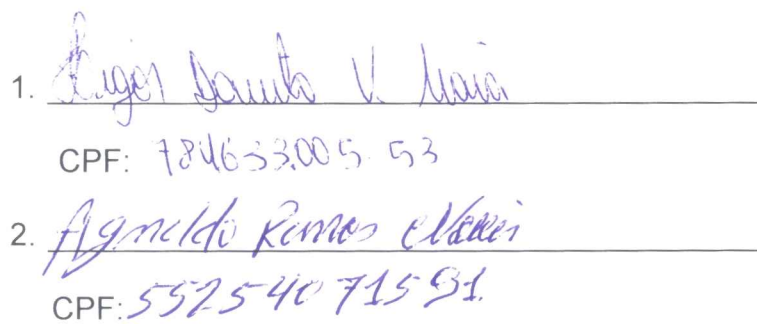 1. Higor Danilo V. Maia
CPF: 784633.005-53
2. Agnaldo Ramos
CPF: 552540 715 91.